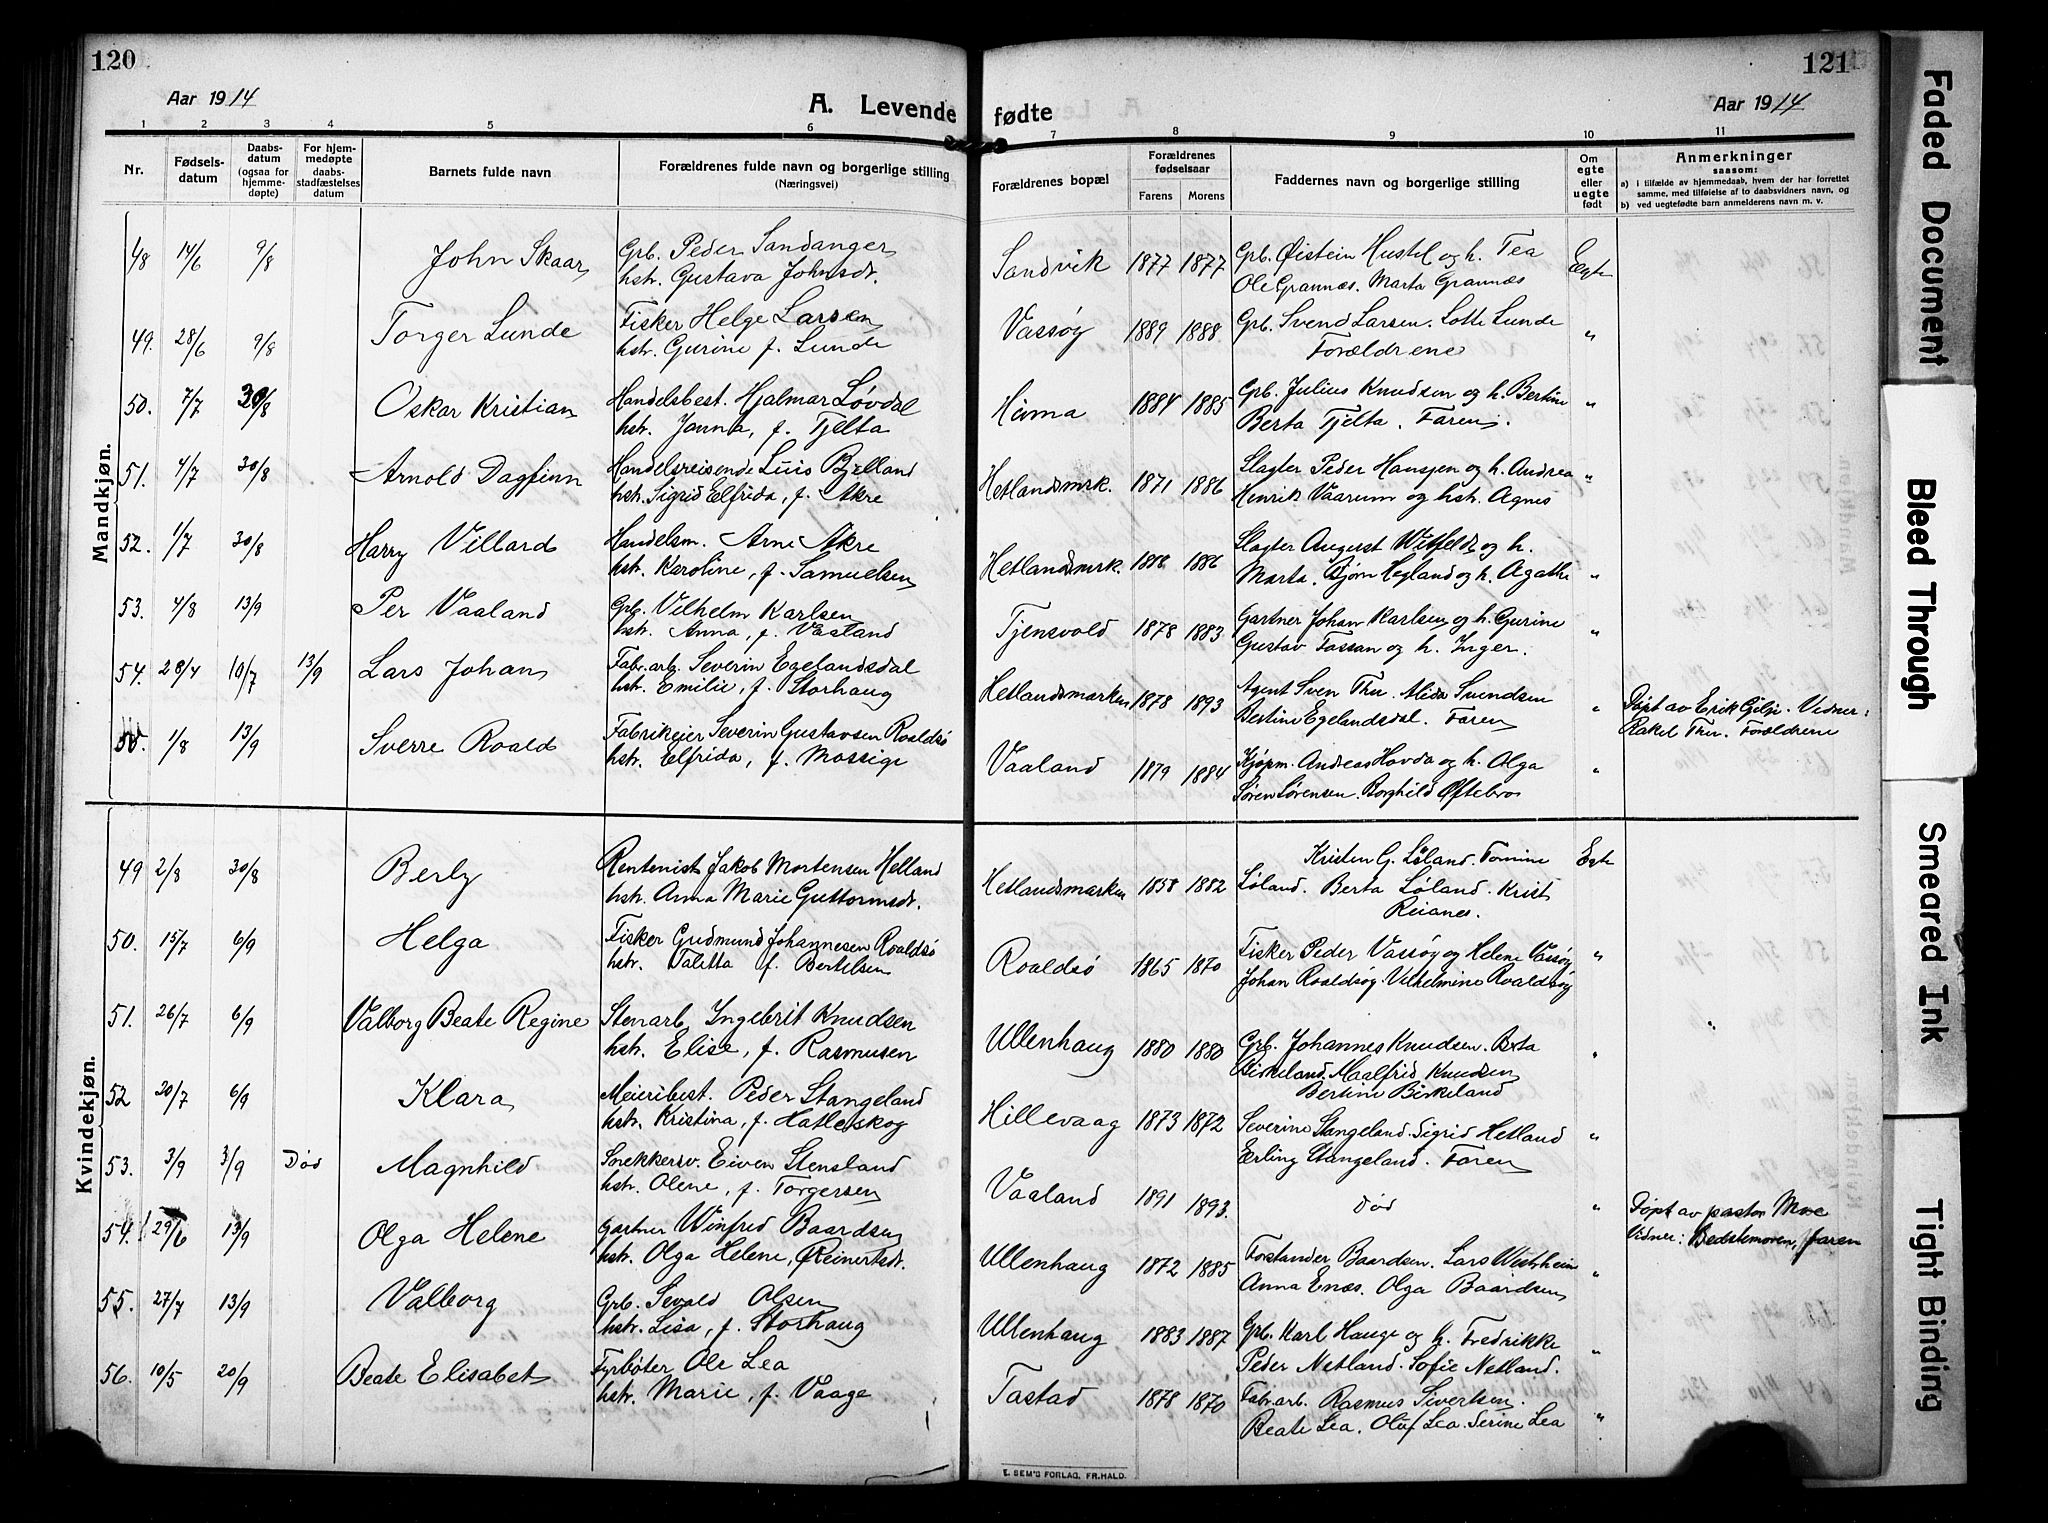 120
121
Aar 1914
A. Levende fødte
Aar 1914
1 2 3 4 5 6 7 8 9 10 11
Nr.
Fødsels-
datum
Daabs-
datum
(ogsaa for
hjemme-
døpte)
For hjem-
medøpte
daabs-
stadfæstelses
datum
Barnets fulde navn
Forældrenes fulde navn og borgerlige stilling
(Næringsvei)
Forældrenes bopæl
Forældrenes
fødselsaar
Farens Morens
Faddernes navn og borgerlige stilling
Om
egte
eller
uegte
født
Anmerkninger
saasom:
a) i tilfælde av hjemmedaab, hvem der har forrettet
samme, med tilføielse af to daabsvidners navn, og
b) ved uegtefødte barn anmelderens navn m. v.
Mandkjøn.
48 14/6 9/8 John Skaar Grb. Peder Sandanger Sandvik 1877 1877 Grb. Øistein Hustel og h. Tea Egte
hstr. Gustava Johnsdt. Ole Grannæs. Marta Grannæs
49. 28/6 9/8 Torger Lunde Fisker Helge Larsen Vassøy 1889 1888 Grb. Svend Larsen. Lotte Lunde "
hstr. Gurine f. Lunde Forældrene
50. 7/7 30/8 Oskar Kristian Handelsbest. Hjalmar Løvdal Hinna 1884 1885 Grb. Julius Knudsen og h. Bertine "
hstr. Janna, f. Tjelta Berta Tjelta. Faren.
51. 4/7 30/8 Arnold Dagfinn Handelsreisende Luis Bjelland Hetlandsmrk. 1871 1886 Slagter Peder Hansen og h. Andrea "
hstr. Sigrid Elfrida, f. Akre Henrik Vaarum og hstr. Agnes
52. 1/7 30/8 Harry Villard Handelsm. Arne Akre Hetlandsmrk. 1886 Slagter August Witfeldt og h.
hstr. Karoline, f. Samuelsen Marta. Bjørn Hegland og h. Agathe "
53. 4/8 13/9 Per Vaaland Grb. Vilhelm Karlsen Tjensvold 1878 1883 Gartner Johan Karlsen og h. Gurine "
hstr. Anna, f. Vaaland Gustav Tassan og h. Inger.
54. 28/4 10/7 13/9 Lars Johan Fabr.arb. Severin Egelandsdal Hetlandsmarken 1878 1893 Agent Sven Thu. Alida Svendsen " Døpt av Erik Gilje. Vidner:
hstr. Emilie, f. Storhaug Bertine Egelandsdal. Faren Rakel Thu. Forældrene
55. 1/8 13/9 Sverre Roald Fabrikeier Severin Gustavsen Roaldsø Vaaland 1879 1884 Kjøpm. Andreas Hovda og h. Olga "
hstr. Elfrida, f. Mossige Søren Sørensen. Borghild Øftebro
Kvindekjøn.
49 2/8 30/8 Berly Rentenist Jakob Mortensen Helland Hetlandsmarken 1858 1882 Kristen G. Løland. Tomine Egte
hstr. Anna Marie Guttormsdt. Løland. Berta Løland. Krist
Reianes.
50. 15/7 6/9 Helga Fisker Gudmund Johannesen Roaldsø Roaldsø 1865 1870 Fisker Peder Vassøy og Helene Vassøy "
hstr. Talitta f. Bertelsen Johan Roaldsøy. Vilhelmine Roaldsøy
51. 26/7 6/9 Valborg Beate Regine Stenarb. Ingebrit Knudsen Ullenhaug 1880 1880 Grb. Johannes Knudsen. Berta " "
hstr. Elise, f. Rasmusen Birkeland. Maalfrid Knudsen
Bertine Birkeland
52 20/7 6/9 Klara Meieribest. Peder Stangeland Hillevaag 1873 1872 Severine Stangeland. Sigrid Hetland "
hstr. Kristina, f. Hatleskog Erling Stangeland. Faren
53. 3/9 3/9 Død Magnhild Snekkersv. Eiven Stensland Vaaland 1891 1893. Død " Døpt av pastor Moe
hstr. Olene, f. Torgersen Vidner: Bedstemoren, faren
54. 29/6 13/9 Olga Helene Gartner Winfred Baardsen Ullenhaug 1872 1885 Forstander Baardsen. Lars Westrheim "
hstr. Olga Helene, Reinertsdt. Anna Enæs. Olga Baardsen
55. 27/7 13/9 Valborg Grb. Sevald Olsen Ullenhaug 1883 1887 Grb. Karl Hauge og h. Fredrikke "
hstr. Lisa, f. Storhaug Peder Netland. Sofie Netland.
56. 10/5 20/9 Beate Elisabet Fyrbøter Ole Lea Tastad 1878 1870 Fabr.arb. Rasmus Sivertsen. "
hstr. Marie, f. Vaage Beate Lea. Oluf Lea. Serine Lea
E. SEM'S FORLAG, FR.HALD.
Faded Document
Bleed Through
Smeared Ink
Tight Binding